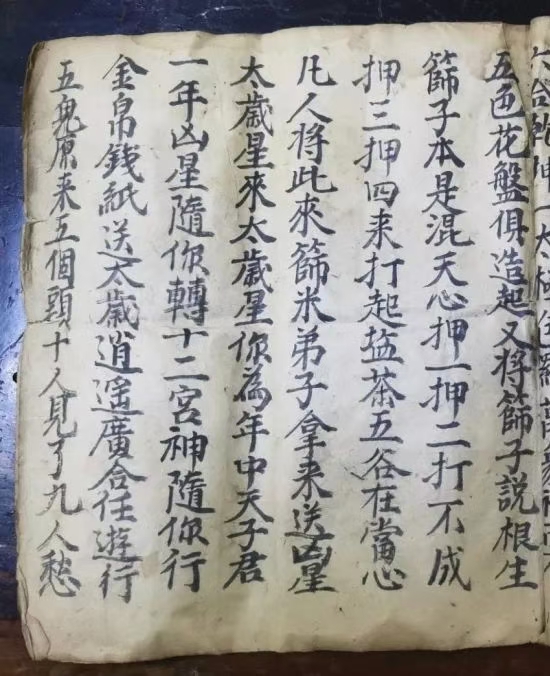 五色花盤俱造起又将篩子説根生
篩子本是混天心押一押二打不成
押三押四来打起盐茶五谷在當心
凡人将此來篩米弟子拿来送凶星
太歲星來太歲星你為年中天子君
一年凶星隨你轉十二宮神隨你行
金帛錢紙送太歲逍遥廣合任遊行
五鬼原来五個頭十人見了九人愁